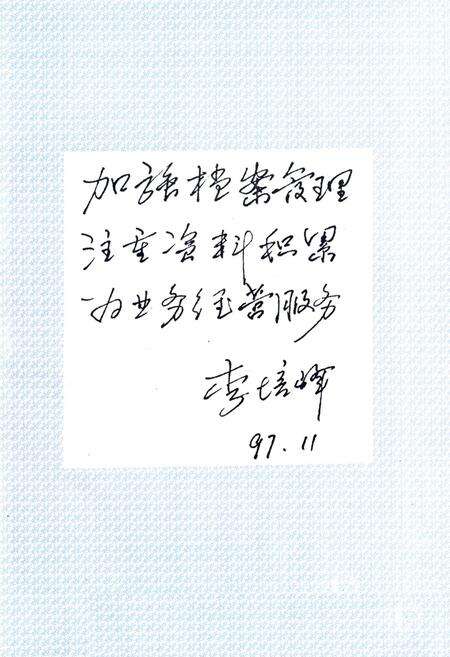 加强档案管理
注重资料积累
为业务经营服务
李培峰
97.11